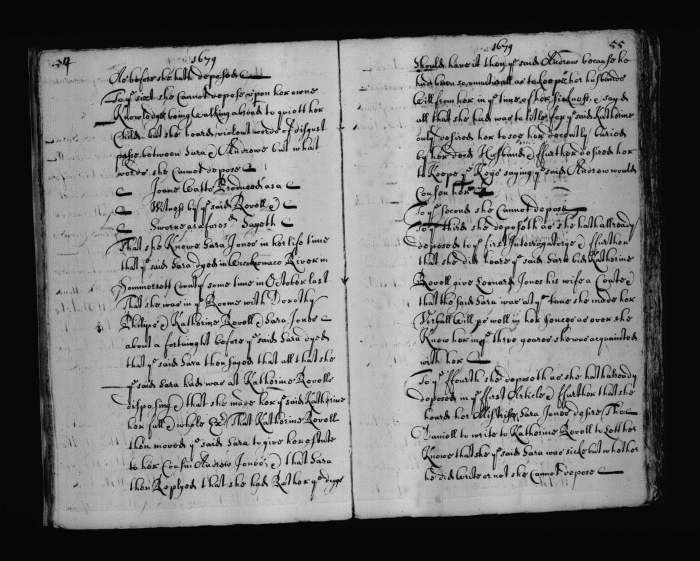 54
1679
As before she hath deposed
To ye sixt she Cannot depose upon her owne
Knowledge being walking abroad to quiett her
Child, but she heard violent words of disgust
passe between Sara & Androwe but what
words she Cannot depose
Joane Batts Produced as a
Witness by ye said Rovell &
Sworne as afores'd Sayeth
That she Knowe Sara Jones in her life time
that ye said Sara dyed in Wicokomaco River in
Sommersett County some time in October last
That she was in ye Roome with Dorothy
Philips & Katherine Rovell & Sara Jones
about a fortnight before ye said Sara dyed
that ye said Sara then sayed that all that she
ye said Sara had was at Katherine Rovells
disposing & that she made her ye said Katherine
her full & whole Ex: That Katherine Rovell
then moved ye said Sara to give her estate
to her Cousin Andrew Jones, & that Sara
then Replyed that she had Rather ye doggs
1679
55
Should have it then ye said Andrew because he
had been so
Will from her in ye time of her sickness, & sayd
all that she had was to little for ye said Katherine
only desired her to see her decently buried
by her dead Husband & ffurther desired her
to Keepe ye Keys saying ye said Andrew would
Cousen her
To ye second she Cannot depose
To ye third she deposeth as she hath allready
deposed to ye first Interrogatorye & ffurther
that she did heare ye said Sara bid Katherine
Rovell give Leonard Jones his wife a Coate &
that the said Sara was at ye time she made her
Will as well in her sences as ever she
Knew her in ye three yeares she was acquainted
with her
To ye ffourth she deposeth as she hath already
deposed in ye first Article & ffurther that she
heard her Sara Jones desire Tho:
Daniell to write to Katherine Rovell to lett her
Knowe that she ye said Sara was sicke but whether
he did write or not she Cannot depose